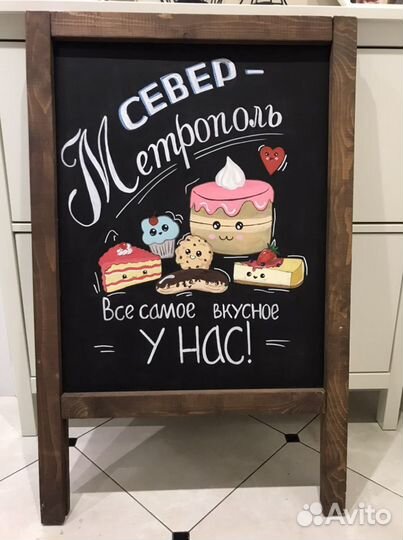 СЕВЕР-
Метрополь
Все самое вкусное
У НАС!
Avito